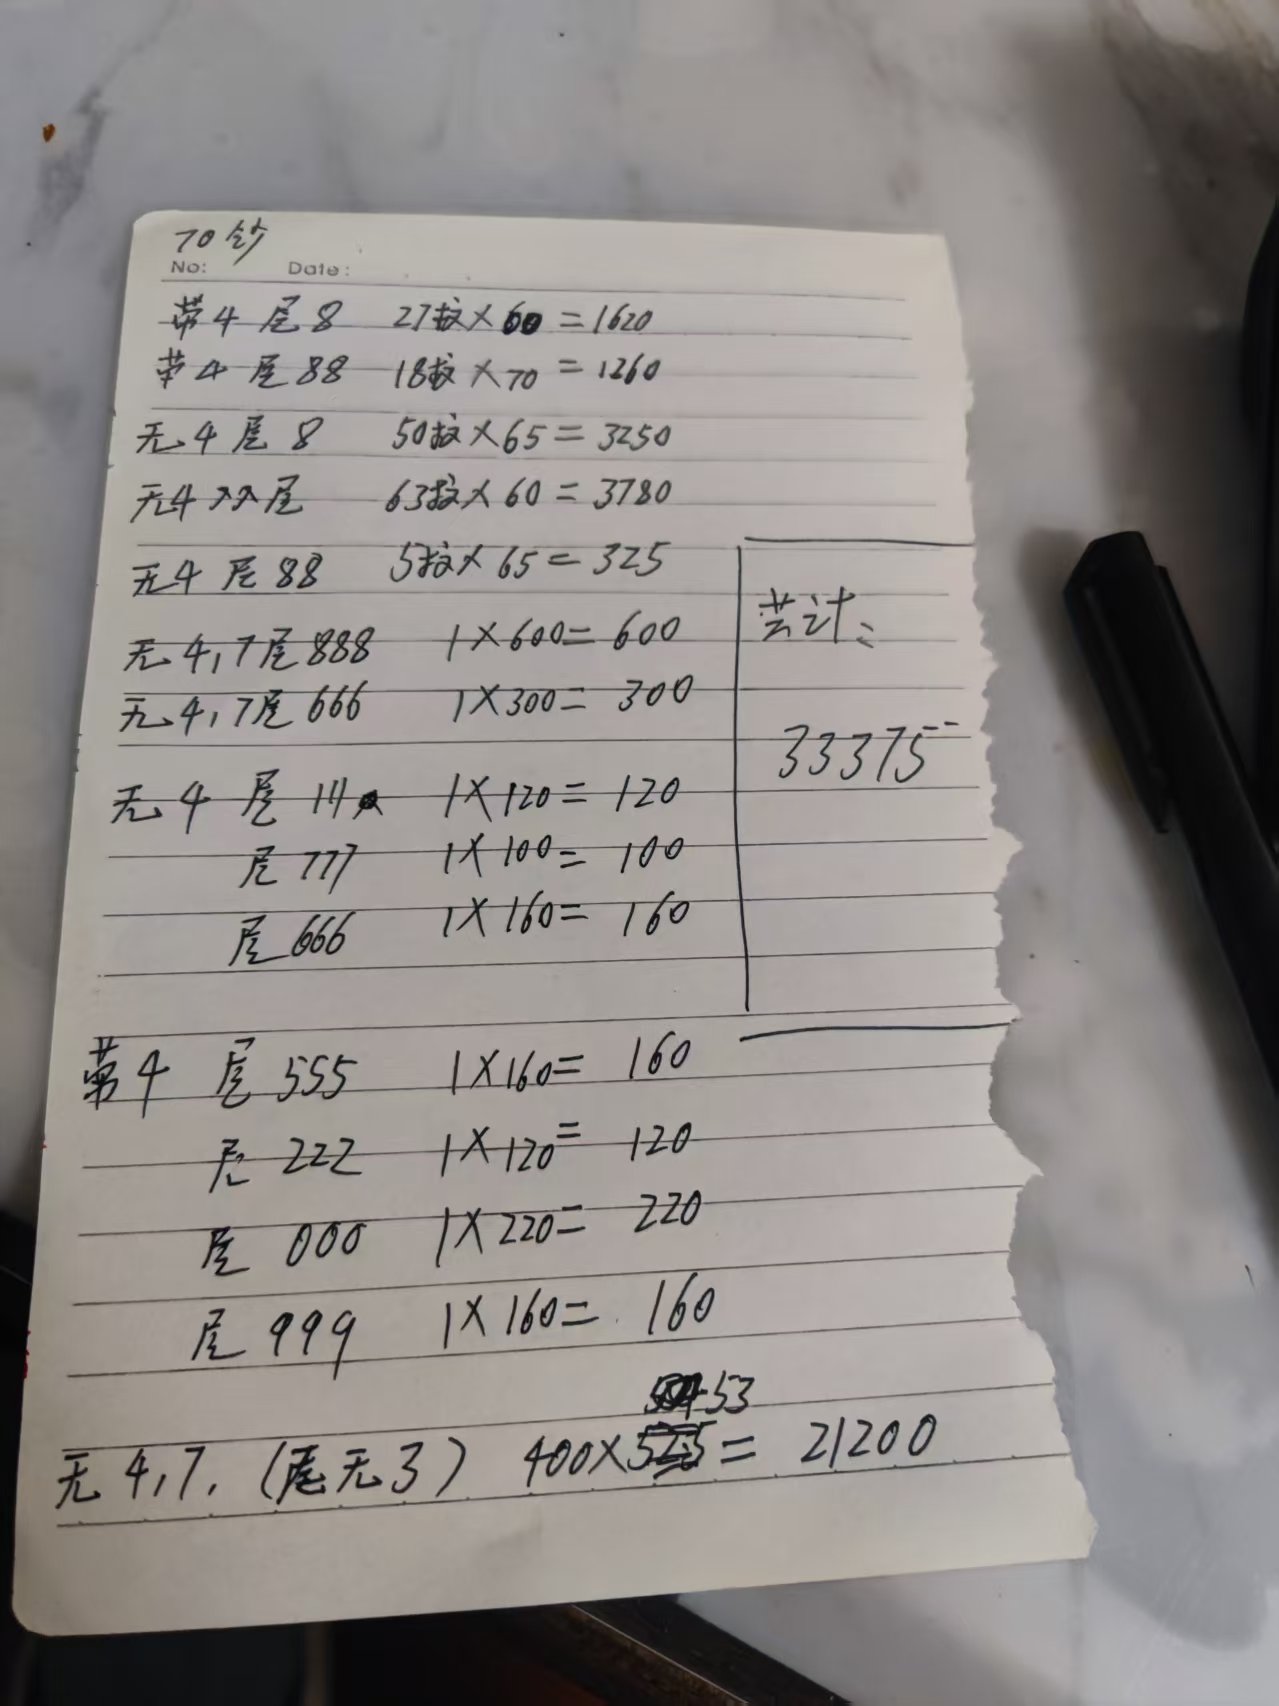 70钞
No: Date:
带4 尾8 27枚×60=1620
带4 尾88 18枚×70=1260
无4尾8 50枚×65=3250
无4双尾 63枚×60=3780
无4尾88 5枚×65=325
无4,7尾888 1×600=600
无4,7尾666 1×300=300
无4 尾111 1×120=120
尾777 1×100=100
尾666 1×160=160
共计:
33375
带4 尾555 1×160=160
尾222 1×120=120
尾000 1×220=220
尾999 1×160=160
53
无4,7.(尾无3) 400× = 21200